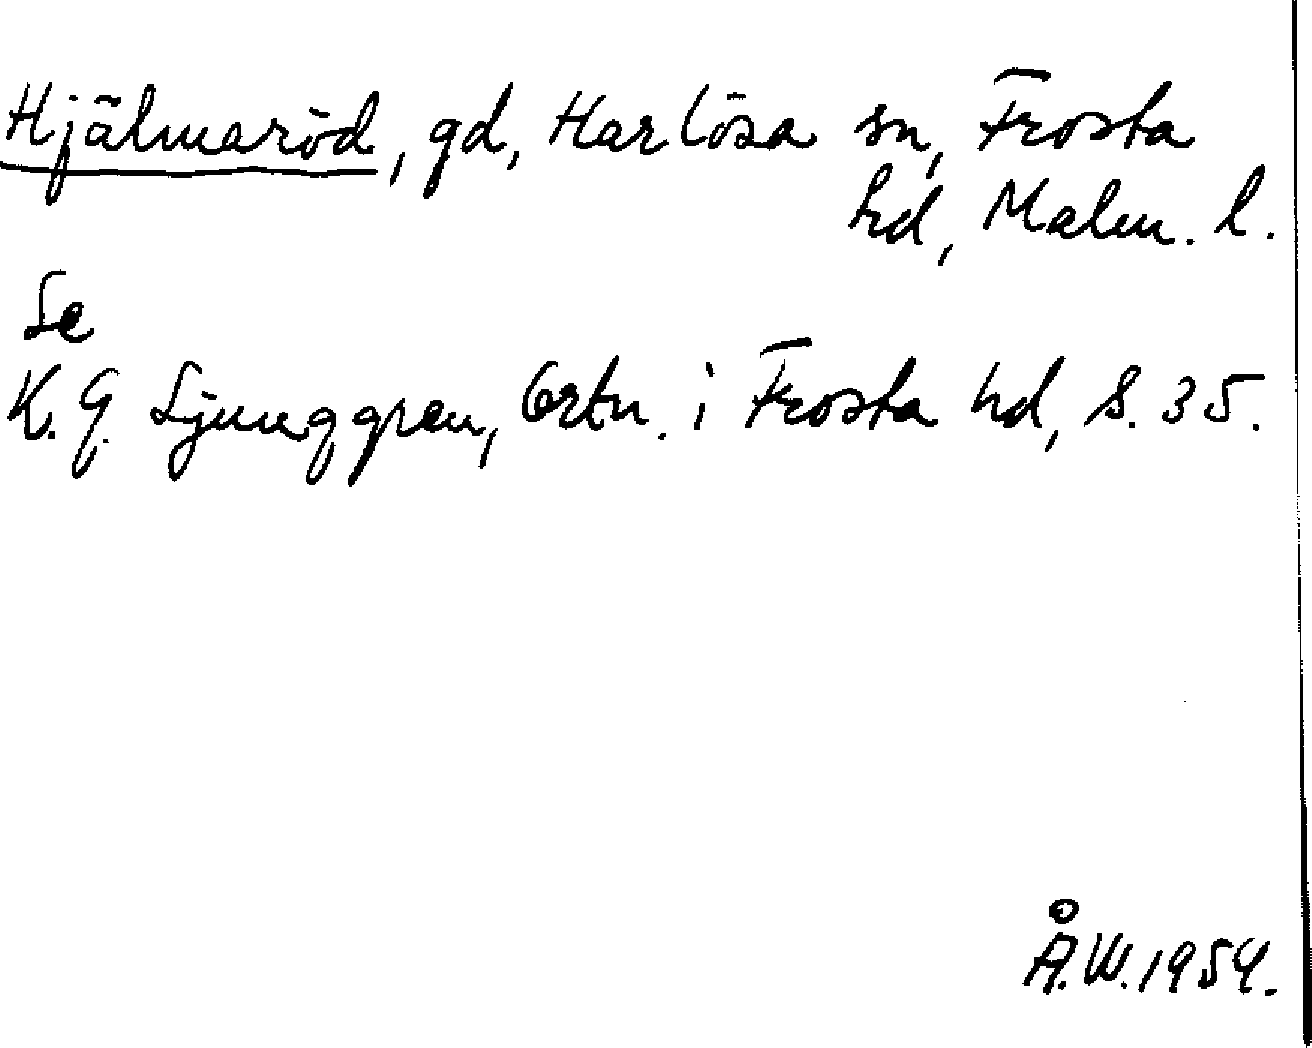 Hjälmaröd, gd, Harlösa sn, Frosta
hd, Malm. l.
Se
K. G. Ljunggren, Ortn. i Frosta hd, s. 35.
Å.W. 1954.